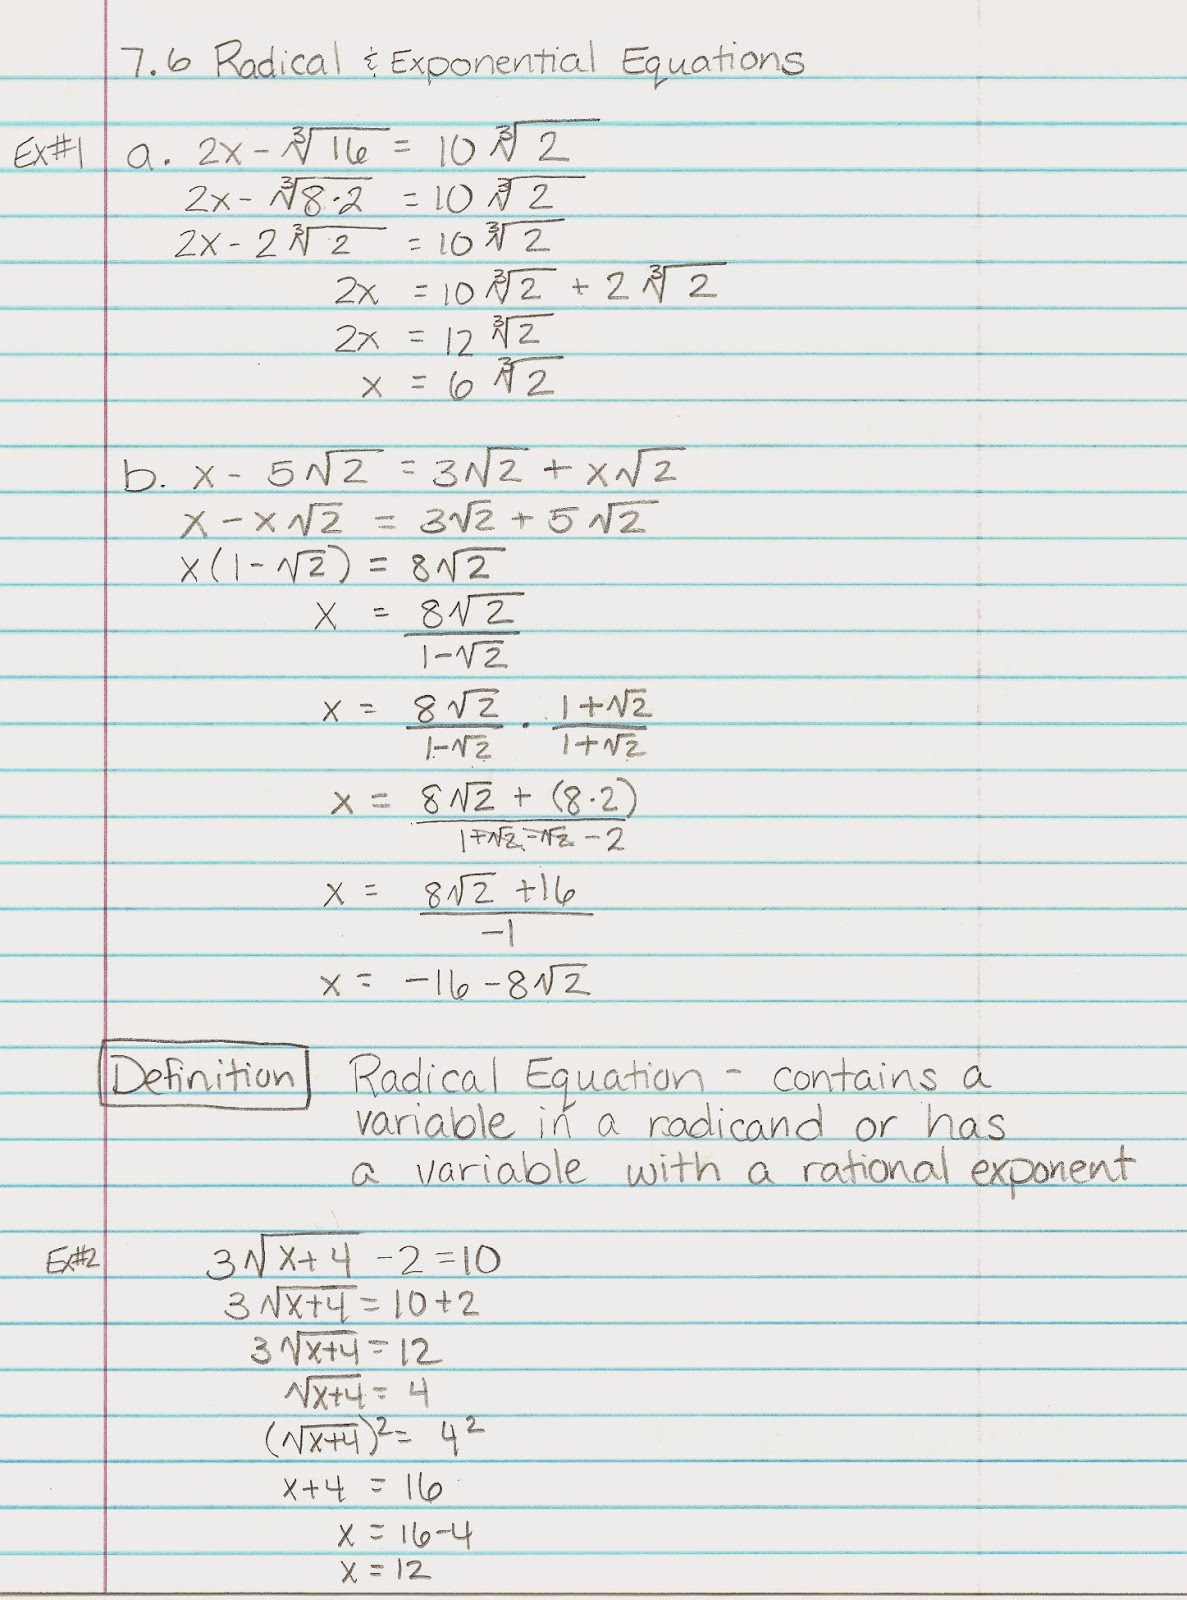 7.6 Radical & Exponential Equations
Ex#1 a. 2x - ∛16 = 10 ∛2
2x - ∛8·2 = 10 ∛2
2x - 2 ∛2 = 10 ∛2
2x = 10 ∛2 + 2 ∛2
2x = 12 ∛2
x = 6 ∛2
b. x - 5√2 = 3√2 + x√2
x - x√2 = 3√2 + 5√2
x(1 - √2) = 8√2
x = 8√2 / 1-√2
x = 8√2 / 1-√2 · 1+√2 / 1+√2
x = 8√2 + (8·2) / 1+√2-√2-2
x = 8√2 + 16 / -1
x = -16 - 8√2
Definition Radical Equation - contains a
variable in a radicand or has
a variable with a rational exponent
Ex#2 3√(x+4) - 2 = 10
3√(x+4) = 10+2
3√(x+4) = 12
√(x+4) = 4
(√(x+4))² = 4²
x+4 = 16
x = 16-4
x = 12